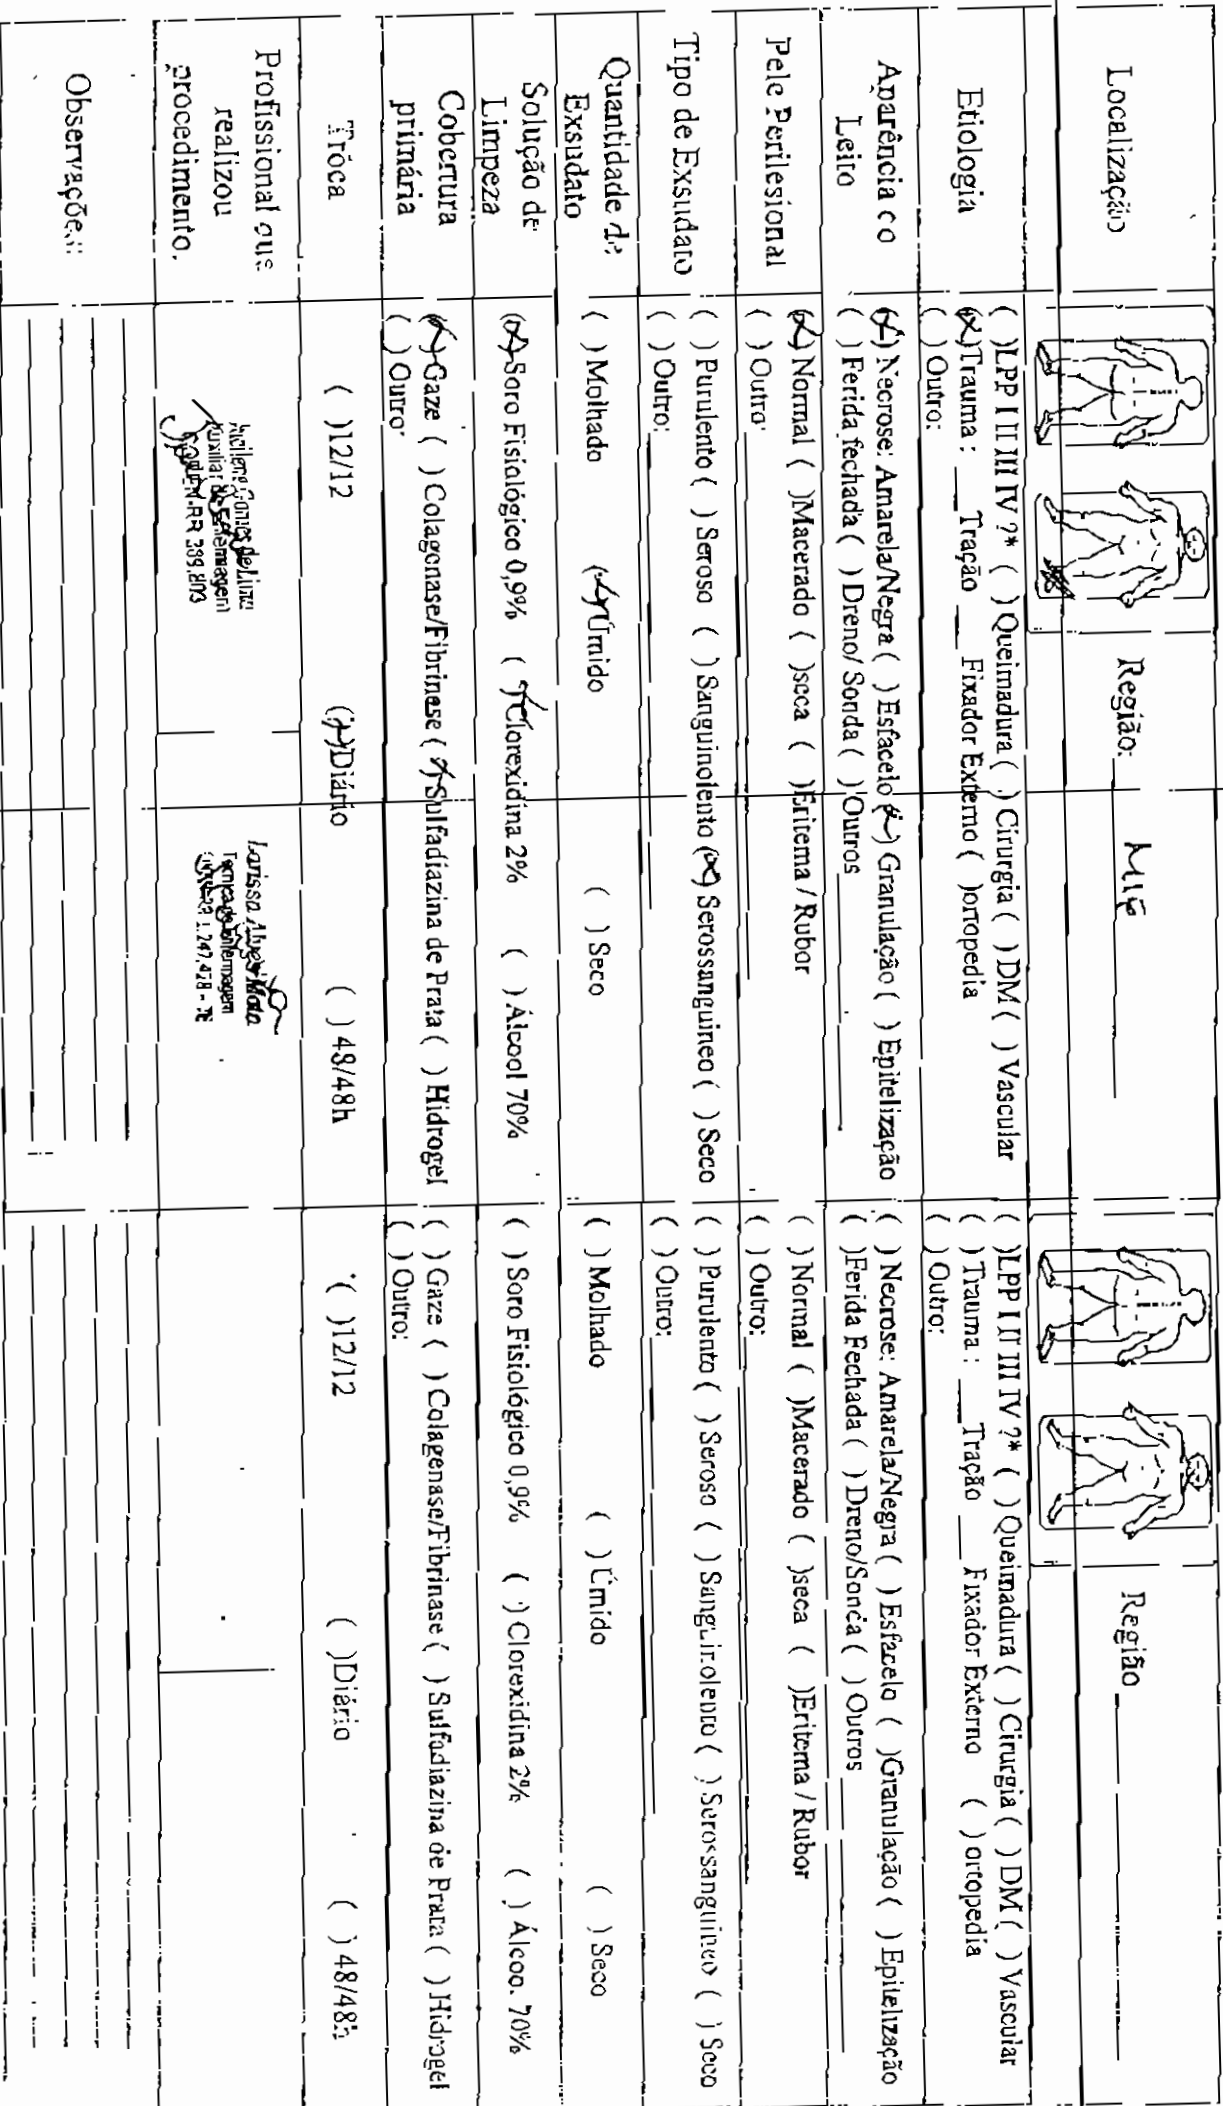 Localização
Região: MIE
Região
Etiologia
( )LPP I II III IV ?* ( ) Queimadura ( ) Cirurgia ( ) DM ( ) Vascular
(X)Trauma : __Tração __ Fixador Externo ( )ortopedia
( ) Outro:
( )LPP I II III IV ?* ( ) Queimadura ( ) Cirurgia ( ) DM ( ) Vascular
( ) Trauma : __Tração __ Fixador Externo ( ) ortopedia
( ) Outro:
Aparência co
Leito
(X) Necrose: Amarela/Negra ( ) Esfacelo (X) Granulação ( ) Epitelização
( ) Ferida fechada ( ) Dreno/ Sonda ( ) Outros
( ) Necrose: Amarela/Negra ( ) Esfacelo ( )Granulação ( ) Epitelização
( )Ferida Fechada ( ) Dreno/Sonda ( ) Outros
Pele Perilesional
(X) Normal ( )Macerado ( )seca ( )Eritema / Rubor
( ) Outro:
( ) Normal ( )Macerado ( )seca ( )Eritema / Rubor
( ) Outro:
Tipo de Exsudato
( ) Purulento ( ) Seroso ( ) Sanguinolento (X) Serossanguineo ( ) Seco
( ) Outro:
( ) Purulento ( ) Seroso ( ) Sanguinolento ( ) Serossanguineo ( ) Seco
( ) Outro:
Quantidade de
Exsudato
( ) Molhado (X) Úmido ( ) Seco
( ) Molhado ( ) Úmido ( ) Seco
Solução de
Limpeza
(X) Soro Fisiológico 0,9% (X) Clorexidina 2% ( ) Álcool 70%
( ) Soro Fisiológico 0,9% ( ) Clorexidina 2% ( ) Álcoo. 70%
Cobertura
primária
(X) Gaze ( ) Colagenase/Fibrinase (X) Sulfadiazina de Prata ( ) Hidrogel
( ) Outro:
( ) Gaze ( ) Colagenase/Fibrinase ( ) Sulfadiazina de Prata ( ) Hidrogel
( ) Outro:
Tróca
( )12/12 (X)Diário ( ) 48/48h
( )12/12 ( )Diário ( ) 48/48h
Profissional que
realizou
procedimento.
Gomes de Lima
Auxiliar de Enfermagem
COREN-RR 389.803
Larissa Alves Mota
Tecnica de Enfermagem
1.247.428 - TE
Observações: